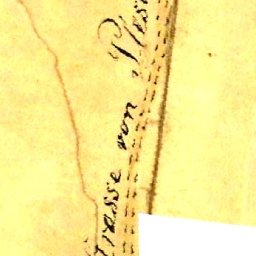 Strasse von Pless